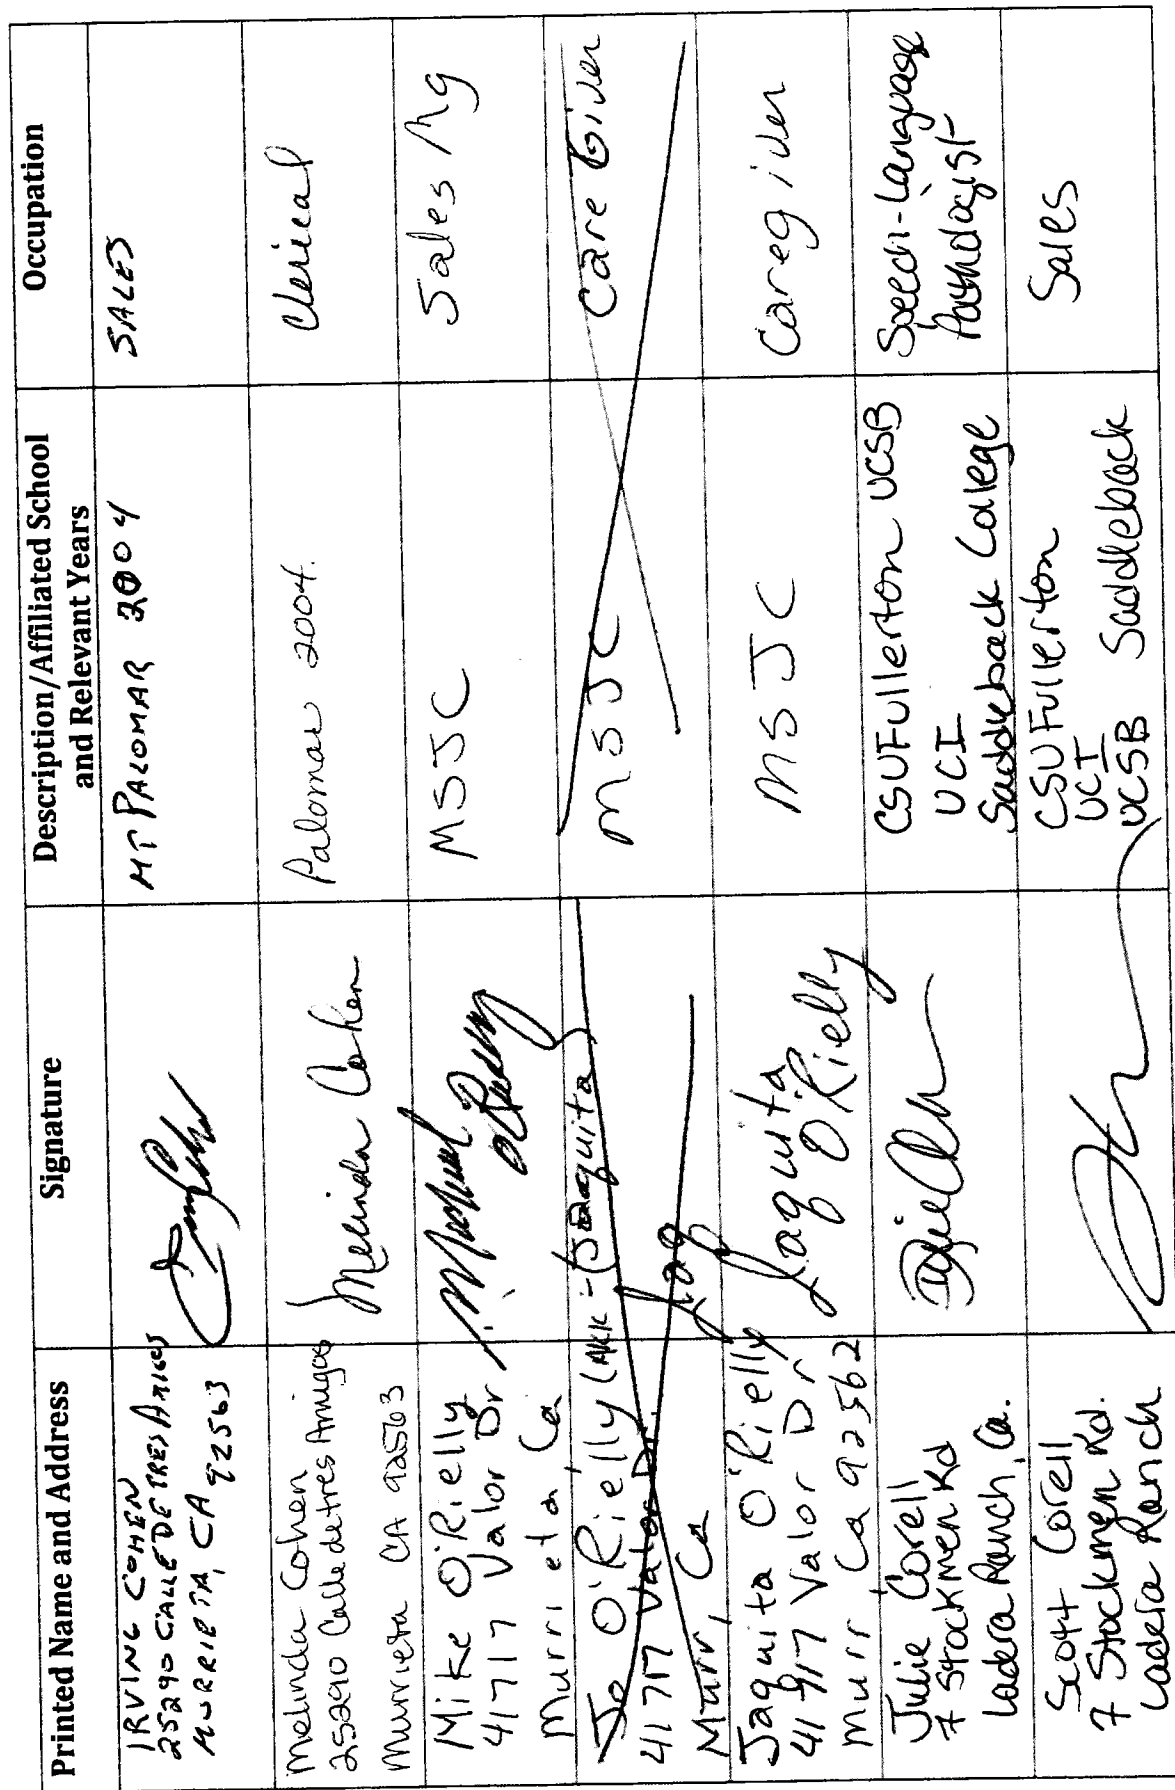 Printed Name and Address
Signature
Description/Affiliated School
and Relevant Years
Occupation
IRVING COHEN
25290 CALLE DE TRES AMIGOS
MURRIETA, CA 92563
MT PALOMAR 2004
SALES
Melinda Cohen
25290 Calle de tres Amigos
Murrieta CA 92563
Melinda Cohen
Palomar 2004.
Clerical
Mike O'Rielly
41717 Valor Dr
Murrieta, Ca
Michael
MSJC
Sales Mg
Jo O'Rielly (AKA - Jaquita)
41717 Valor Dr.
Murr, Ca
Jaq
MSJC
Care Giver
Jaquita O'Rielly
41717 Valor Dr
Murr, Ca 92562
Jaquita
O'Rielly
MSJC
Caregiver
Julie Corell
7 Stockmen Rd
Ladera Ranch, Ca.
CSUFullerton UCSB
UCI
Saddleback College
Speech-Language
Pathologist
Scott Corell
7 Stockmen Rd.
Ladera Ranch
CSUFullerton
UCI
UCSB Saddleback
Sales